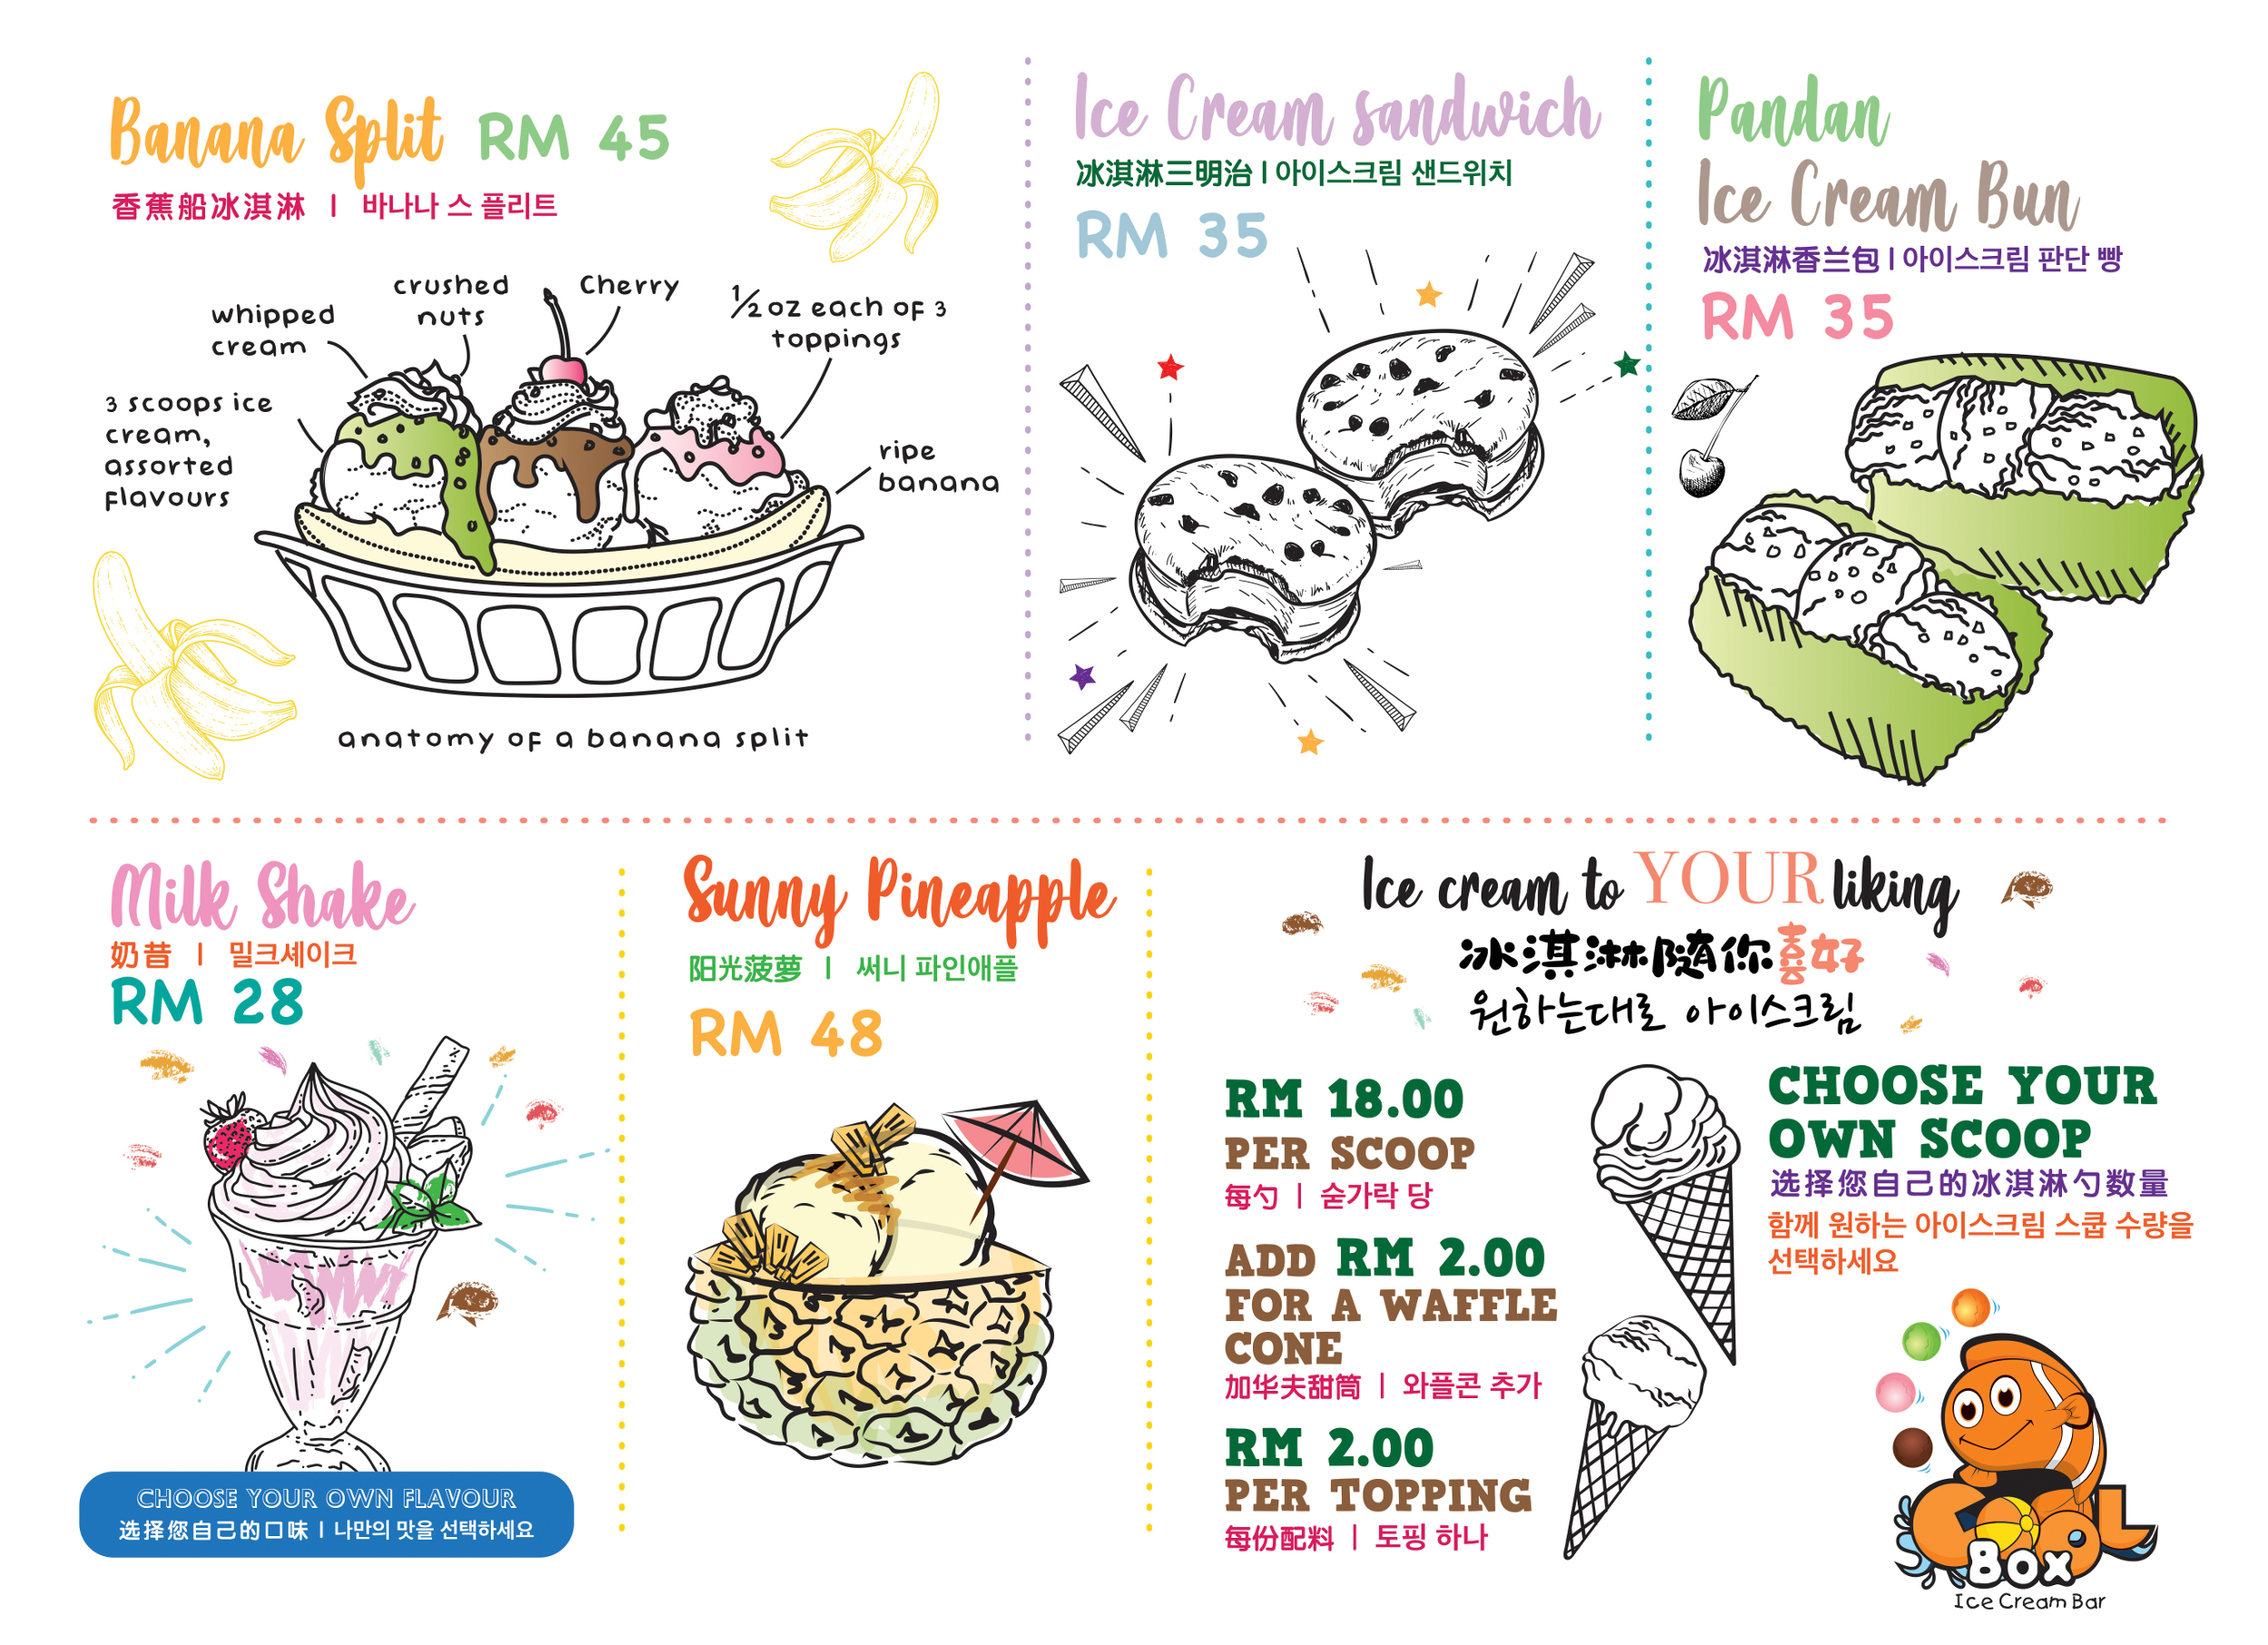 Banana Split RM 45
香蕉船冰淇淋 | 바나나 스 플리트
whipped
cream
crushed
nuts
Cherry
½ oz each of 3
toppings
3 scoops ice
cream,
assorted
flavours
ripe
banana
anatomy of a banana split
Ice Cream sandwich
冰淇淋三明治 | 아이스크림 샌드위치
RM 35
Pandan
Ice Cream Bun
冰淇淋香兰包 | 아이스크림 판단 빵
RM 35
Milk Shake
奶昔 | 밀크셰이크
RM 28
CHOOSE YOUR OWN FLAVOUR
选择您自己的口味 | 나만의 맛을 선택하세요
Sunny Pineapple
阳光菠萝 | 써니 파인애플
RM 48
Ice cream to YOUR liking
冰淇淋随你喜好
원하는대로 아이스크림
RM 18.00
PER SCOOP
每勺 | 숟가락 당
ADD RM 2.00
FOR A WAFFLE
CONE
加华夫甜筒 | 와플콘 추가
RM 2.00
PER TOPPING
每份配料 | 토핑 하나
CHOOSE YOUR
OWN SCOOP
选择您自己的冰淇淋勺数量
함께 원하는 아이스크림 스쿱 수량을
선택하세요
COOL
BOX
Ice Cream Bar